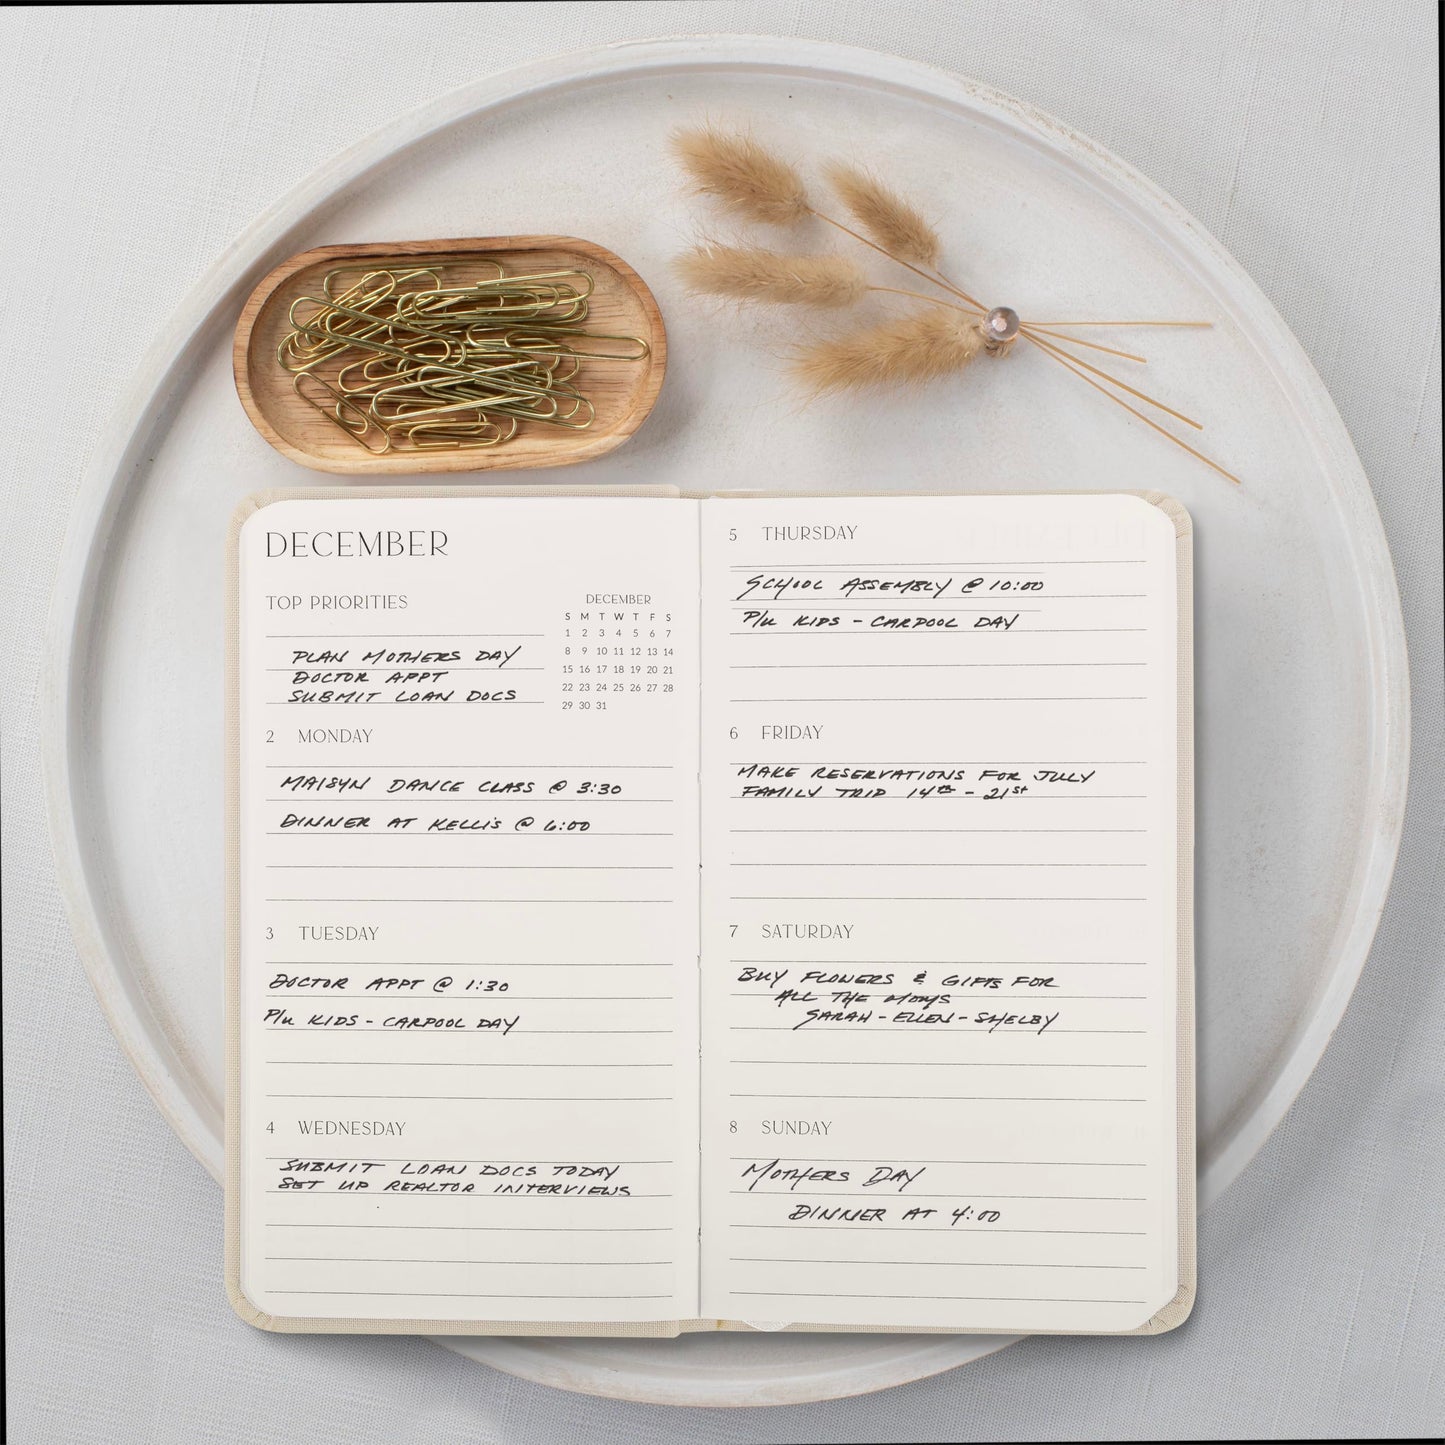 DECEMBER
TOP PRIORITIES
PLAN MOTHERS DAY
DOCTOR APPT
SUBMIT LOAN DOCS
DECEMBER
S M T W T F S
1 2 3 4 5 6 7
8 9 10 11 12 13 14
15 16 17 18 19 20 21
22 23 24 25 26 27 28
29 30 31
2 MONDAY
MAISYN DANCE CLASS @ 3:30
DINNER AT KELLI'S @ 6:00
3 TUESDAY
DOCTOR APPT @ 1:30
P/U KIDS - CARPOOL DAY
4 WEDNESDAY
SUBMIT LOAN DOCS TODAY
SET UP REALTOR INTERVIEWS
5 THURSDAY
SCHOOL ASSEMBLY @ 10:00
P/U KIDS - CARPOOL DAY
6 FRIDAY
MAKE RESERVATIONS FOR JULY
FAMILY TRIP 14th - 21st
7 SATURDAY
BUY FLOWERS & GIFTS FOR
ALL THE MOMS
SARAH - ELLEN - SHELBY
8 SUNDAY
MOTHERS DAY
DINNER AT 4:00